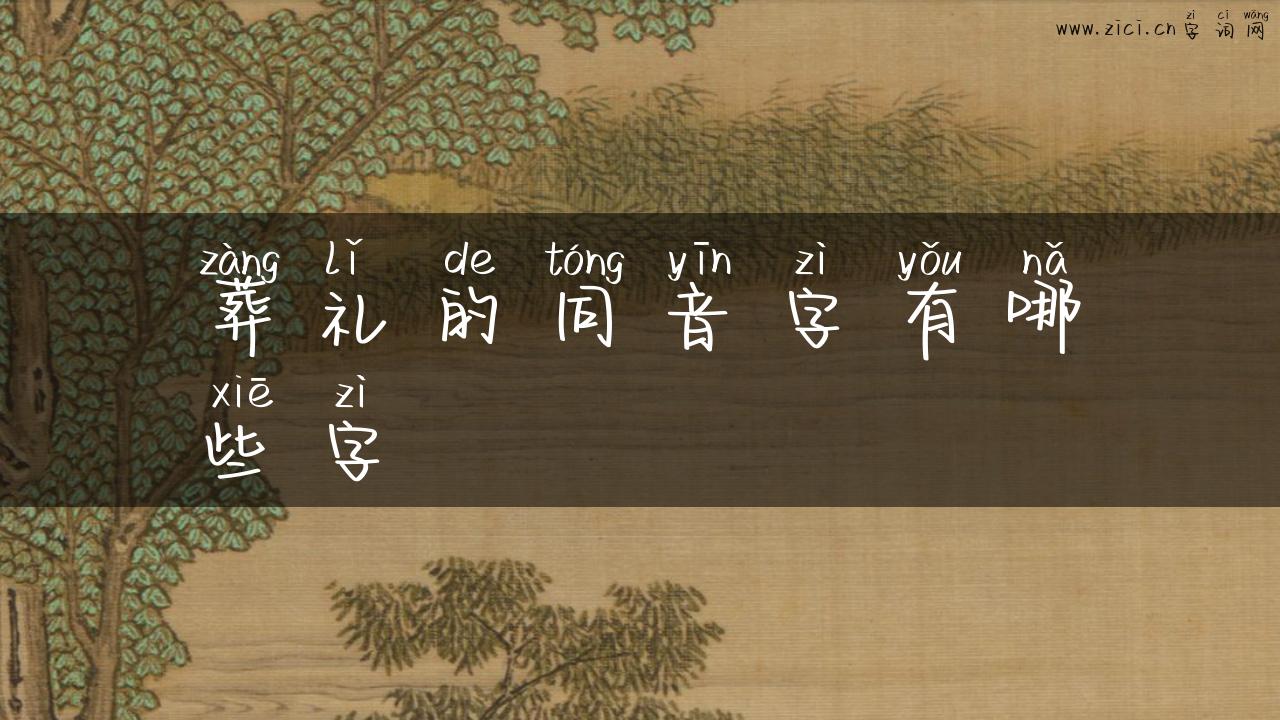 zì cí wǎng
www.zici.cn字词网
zàng lǐ de tóng yīn zì yǒu nǎ
葬礼的同音字有哪
xiē zì
些字